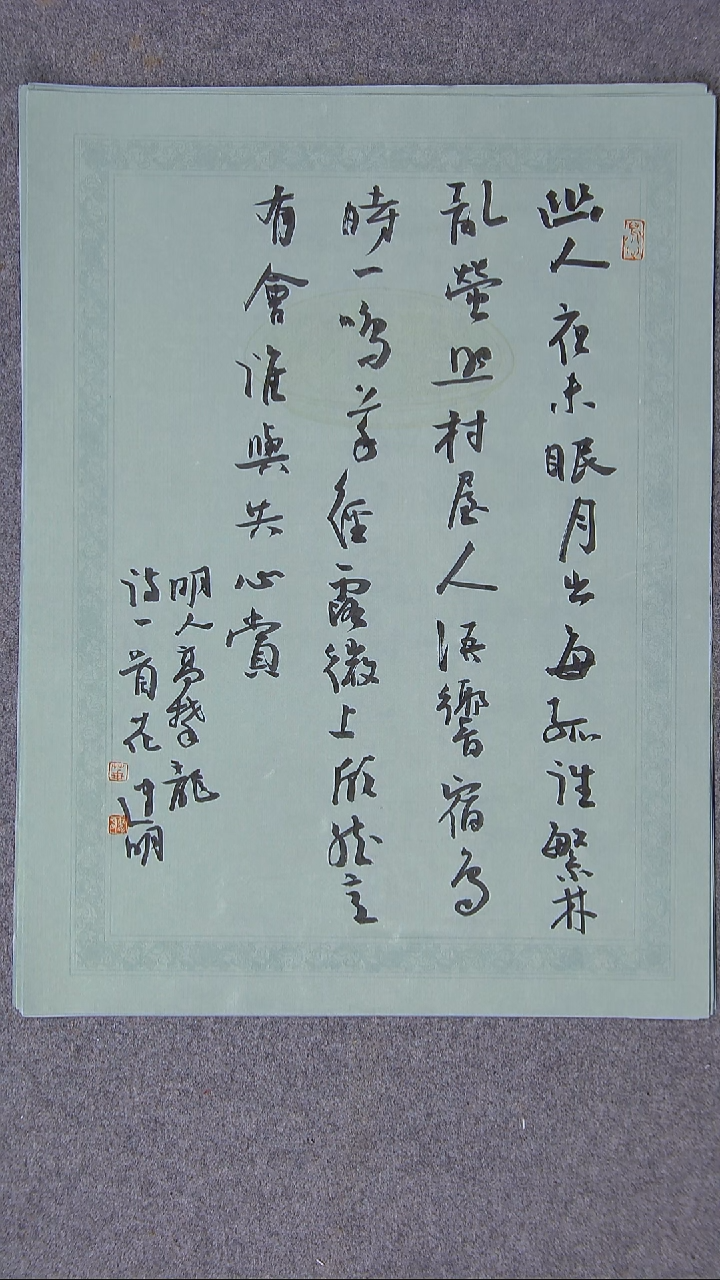 幽人夜未眠月出每孤往繁林
乱螢照村屋人語響宿鳥
時一鳴草徑露微上欣然意
有會誰與共心賞
明人高攀龍
詩一首